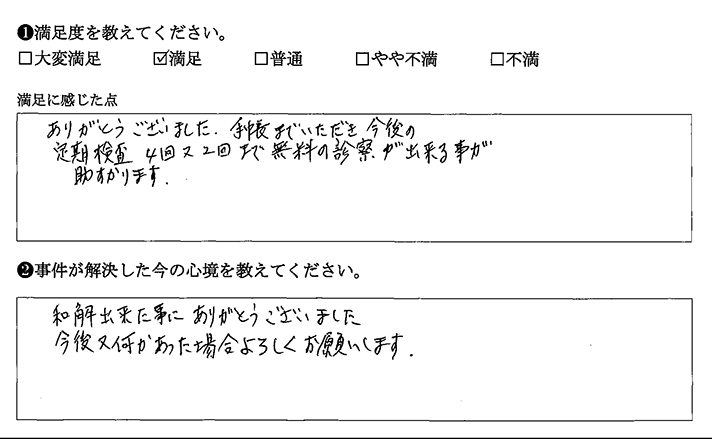 ❶満足度を教えてください。
□大変満足 ☑満足 □普通 □やや不満 □不満
満足に感じた点
ありがとうございました. 手帳までいただき 今後の
定期検査 4回又2回まで無料の診察が出来る事が
助すかります.
❷事件が解決した今の心境を教えてください。
和解出来た事に ありがとうございました
今後又何かあった場合よろしくお願いします.